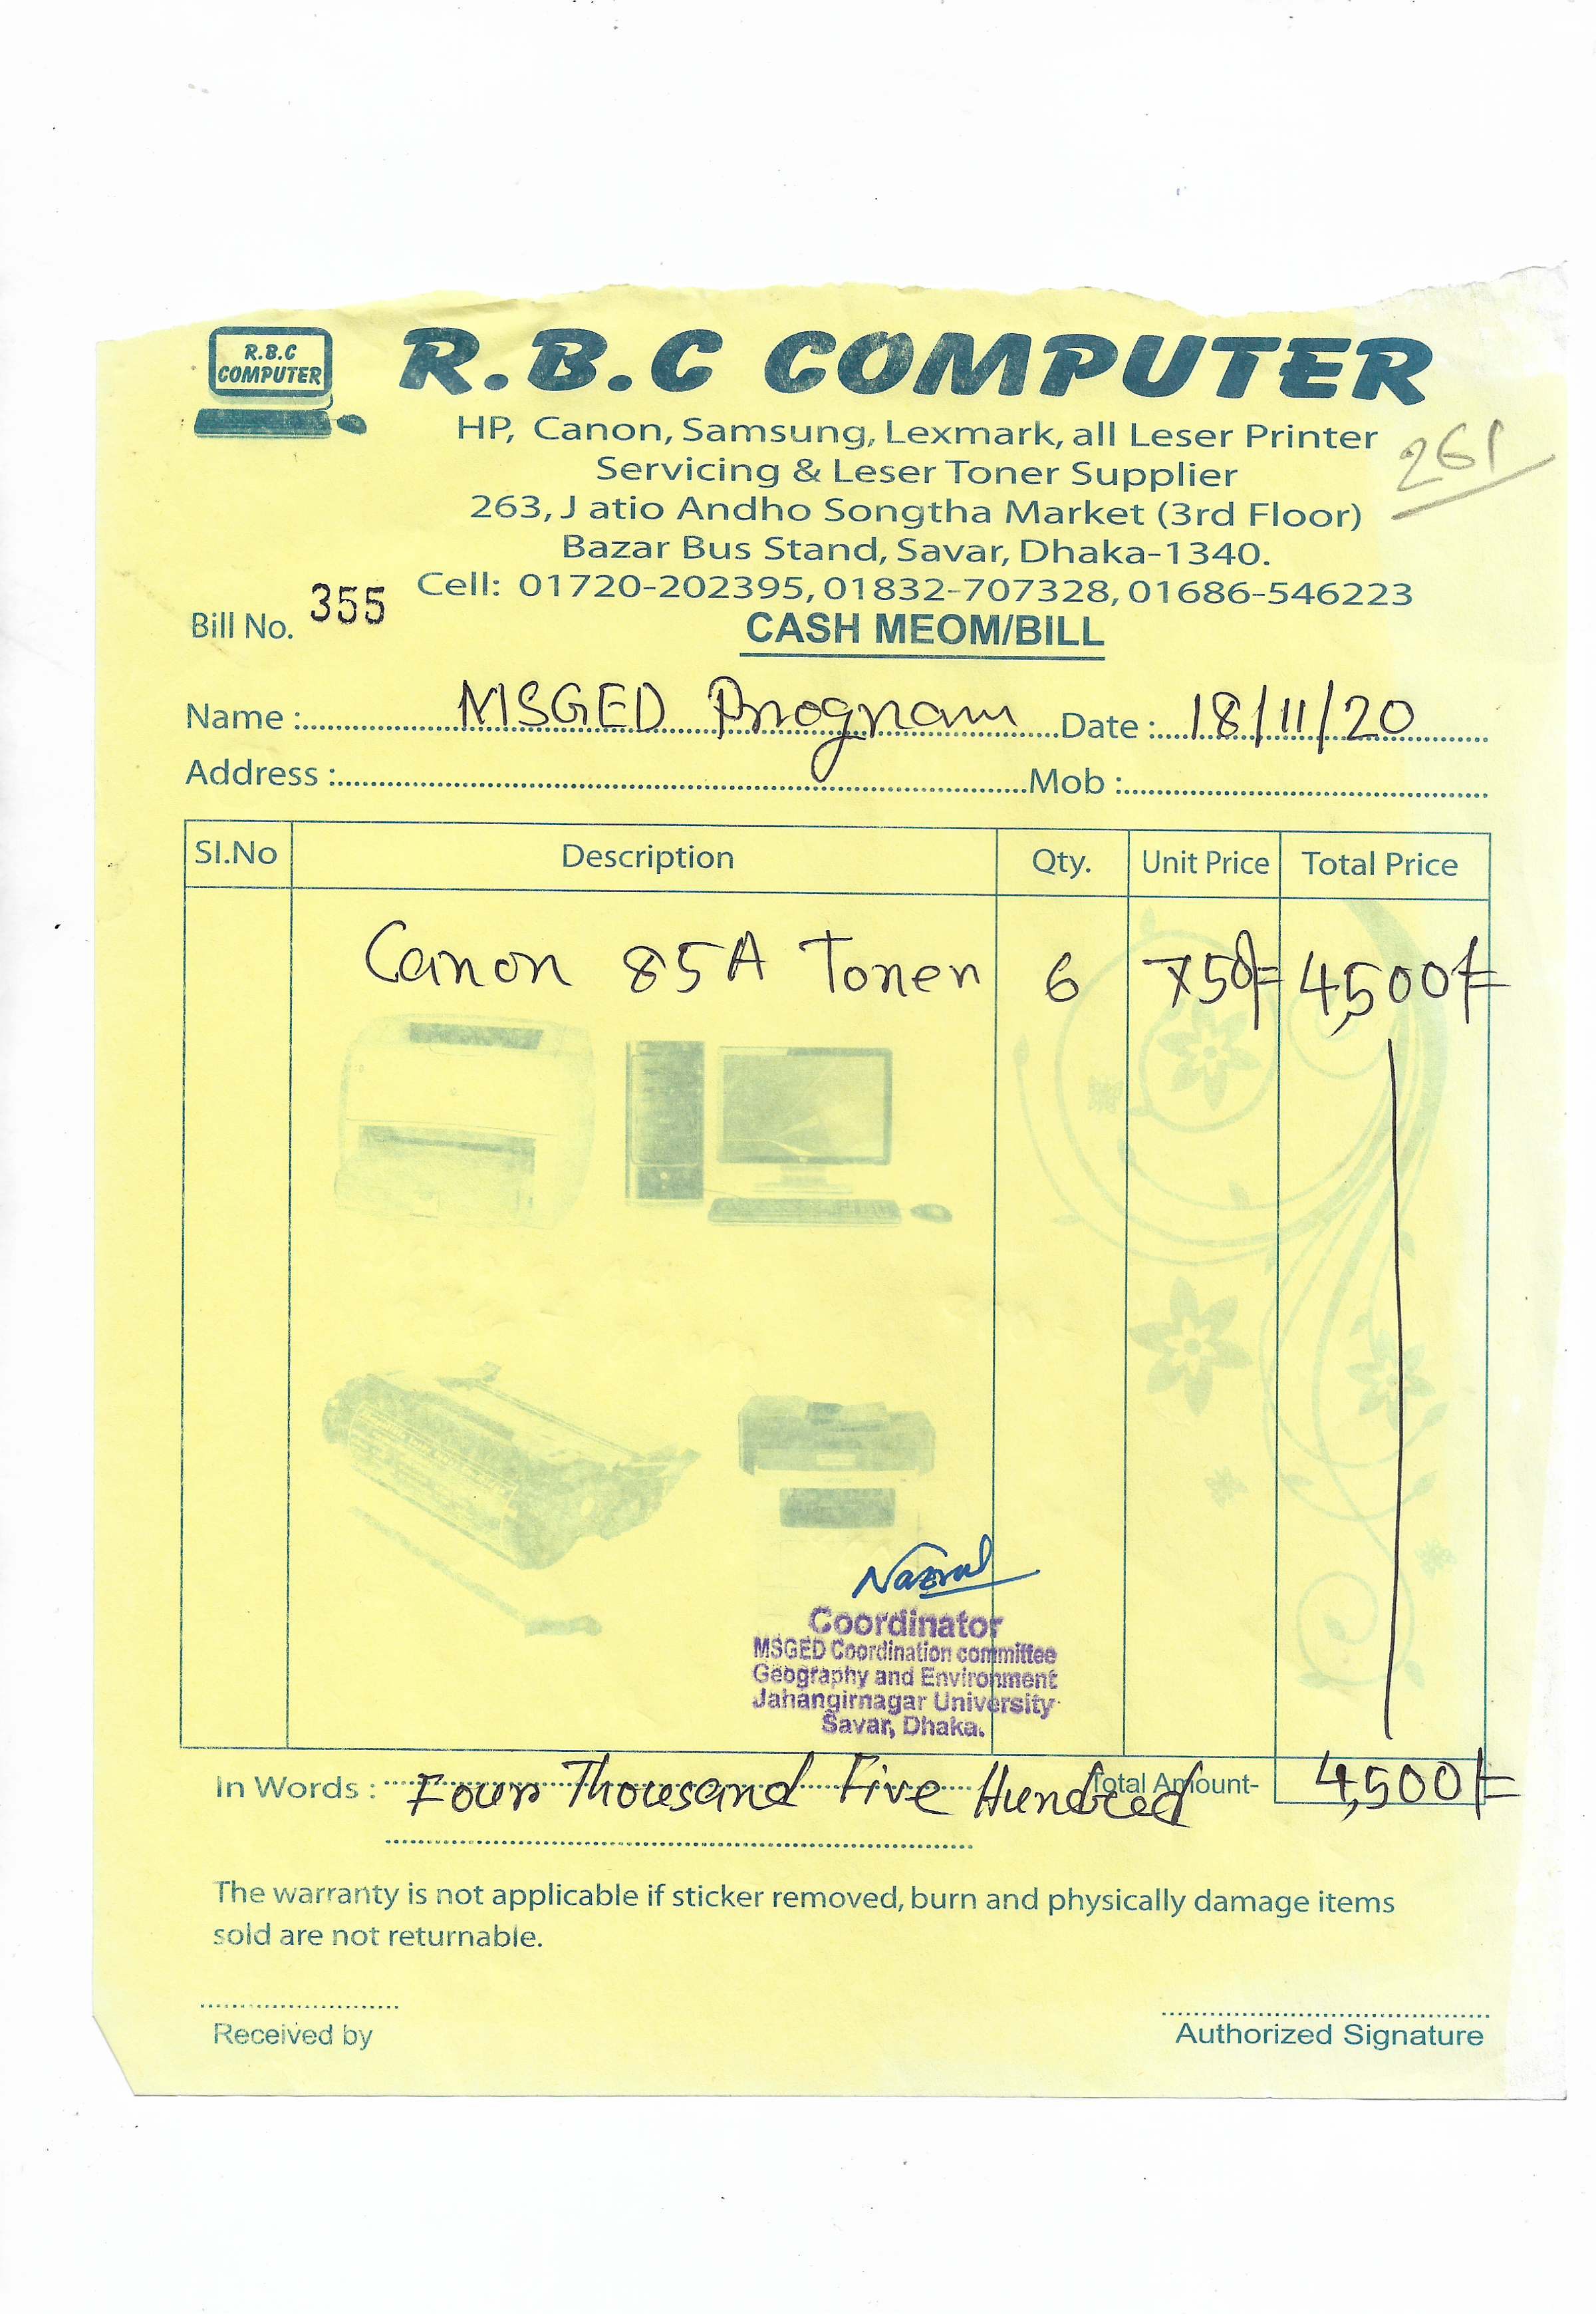 R.B.C
COMPUTER
R.B.C COMPUTER
HP, Canon, Samsung, Lexmark, all Leser Printer
Servicing & Leser Toner Supplier
261
263, J atio Andho Songtha Market (3rd Floor)
Bazar Bus Stand, Savar, Dhaka-1340.
Cell: 01720-202395, 01832-707328, 01686-546223
Bill No. 355
CASH MEOM/BILL
Name : MSGED Program Date : 18/11/20
Address : Mob :
Sl.No Description Qty. Unit Price Total Price
Canon 85A Toner 6 750/= 4,500/=
Nazrul
Coordinator
MSGED Coordination committee
Geography and Environment
Jahangirnagar University
Savar, Dhaka.
In Words : Four Thousand Five Hundred Total Amount- 4,500/=
The warranty is not applicable if sticker removed, burn and physically damage items
sold are not returnable.
Received by Authorized Signature